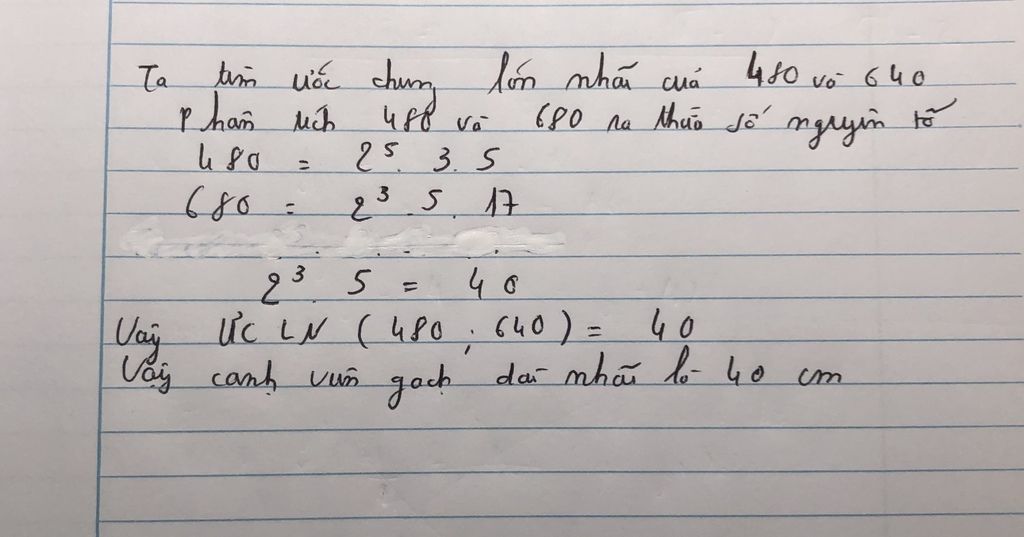 Ta tìm ước chung lớn nhất của 480 và 640
Phân tích 480 và 680 ra thừa số nguyên tố
480 = 2⁵. 3. 5
680 = 2³. 5. 17
2³. 5 = 40
Vậy ƯCLN (480 ; 640) = 40
Vậy cạnh viên gạch dài nhất là 40 cm